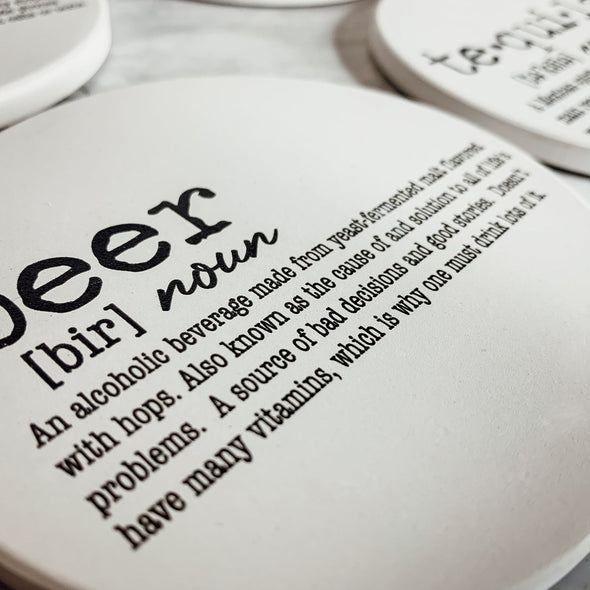 beer
[bir] noun
An alcoholic beverage made from yeast-fermented malt flavored
with hops. Also known as the cause of and solution to all of life's
problems. A source of bad decisions and good stories. Doesn't
have many vitamins, which is why one must drink lots of it
te·qui·